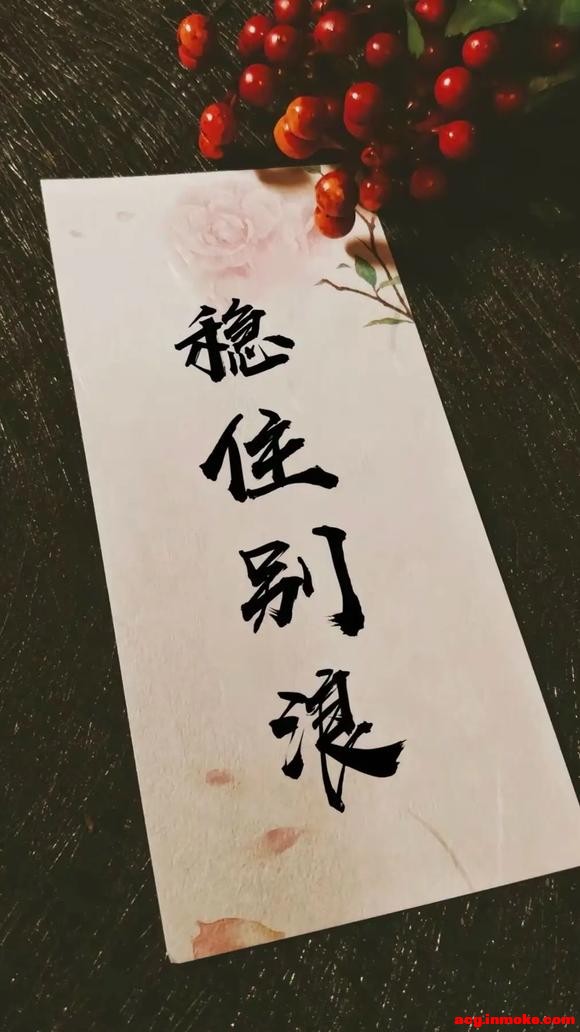 稳住别浪
acg.inmoke.com